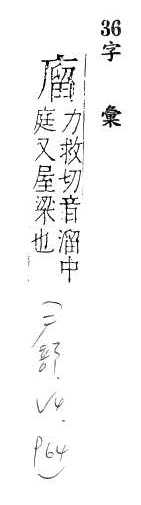 36字彙
廇力救切音溜中
庭又屋梁也
(广部.V4.
P64)